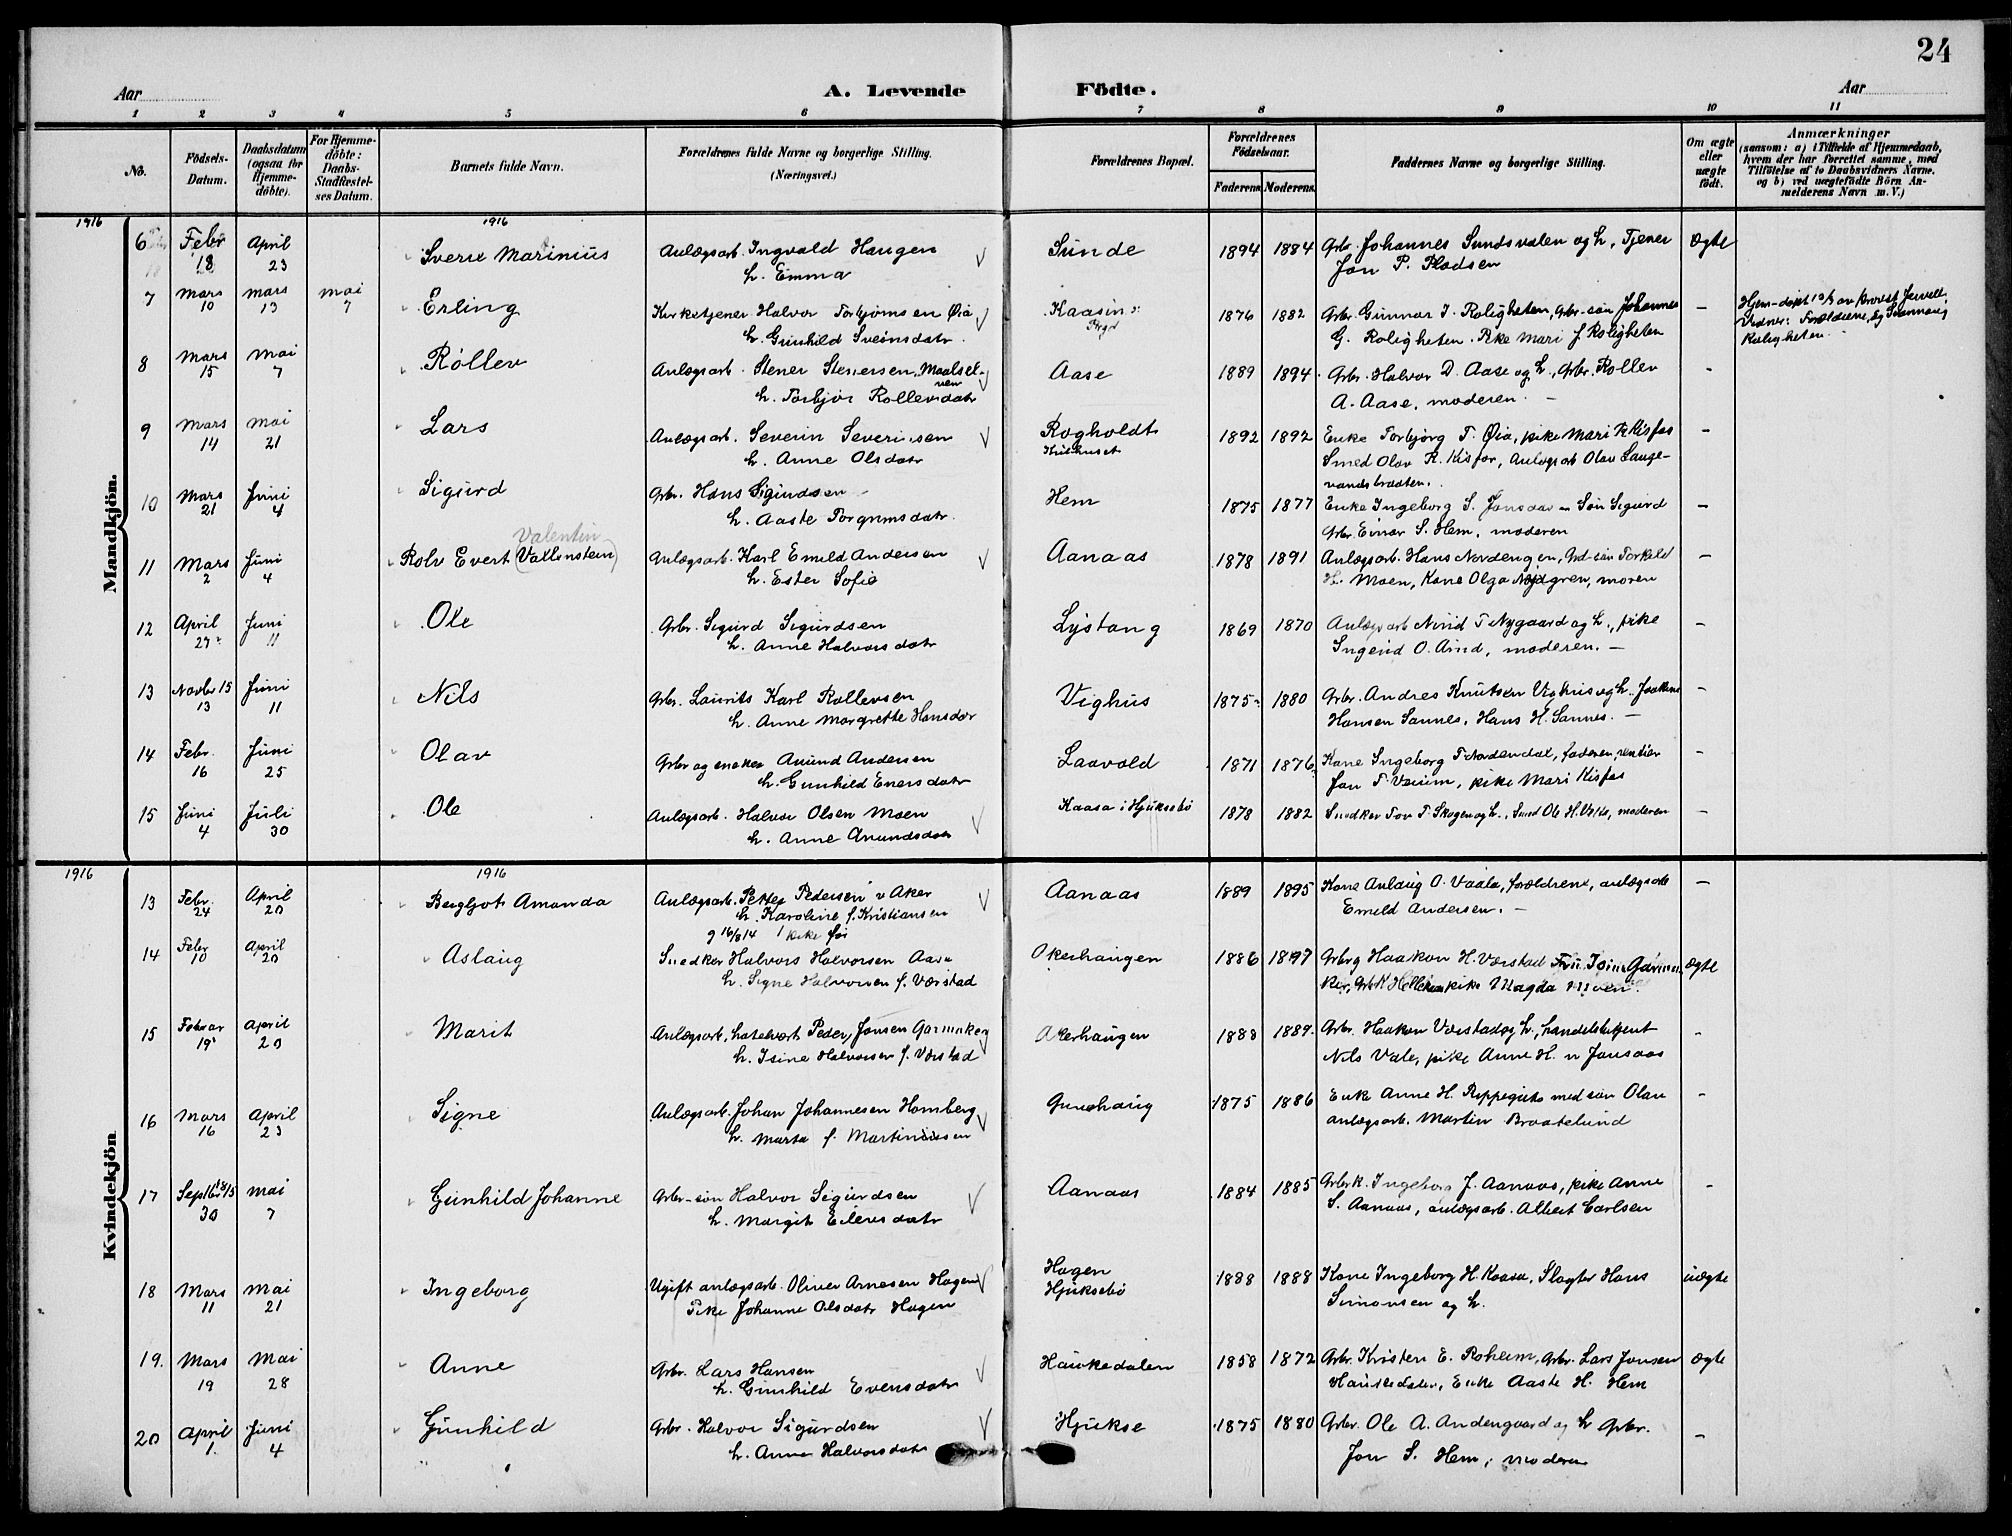 24
Aar A. Levende Födte. Aar
1 2 3 4 5 6 7 8 9 10 11
No. Födsels-Datum. Daabsdatum (ogsaa for Hjemme-döbte). For Hjemme-döbte: Daabs-Stadfæstel-ses Datum. Barnets fulde Navn. Forældrenes fulde Navne og borgerlige Stilling. (Næringsvei.) Forældrenes Bopæl. Forældrenes Födselsaar. Faderens. Moderens. Faddernes Navne og borgerlige Stilling. Om ægte eller uægte födt. Anmærkninger (saasom: a) i Tilfælde af Hjemmedaab, hvem der har forrettet samme, med Tilföielse af to Daabsvidners Navne, og b) ved uægtefödte Börn An-melderens Navn m. V.)
Mandkjön.
1916 1916
6 Febr 18 April 23 Sverre Marinius Anlægsarb. Ingvald Haugen Sunde 1894 1884 Grbr. Johannes Sundsvalen og h., Tjener Ægte
h. Emma Jon P. Pladsen
7 Mars 10 Mars 13 Mai 7 Erling Kirketjener Halvor Torbjørnsen Øia Kaasin 1876 1882 Grbr. Gunnar J. Roligheten, Grbr. søn Johannes —
h. Gunhild Sveinsdatr. G. Roligheten. Pike Mari J Roligheten
Hjem-døpt av Provst
Vidner: Forældrene, og
Roligheten
8 Mars 15 Mai 7 Rollev Anlægsarb. Stener Stenersen, Maalsel-ven Aase 1889 1894 Grbr. Halvor D. Aase og h., Grbr. Rollev -
h. Torbjør Rollevsdatr A. Aase, moderen. —
9 Mars 14 Mai 21 Lars Anlægsarb. Severin Severinsen Rogholdt 1892 1892 Enke Torbjørg T. Øia, pike Mari Kisfos -
h. Anne Olsdatr. Smed Olav R. Kisfos, Anlægsarb Olav Lauge-
vandsbraaten.
10 Mars 21 Juni 4 Sigurd Grbr. Hans Sigurdsen Hem 1875 1877 Enke Ingeborg S. Søn Sigurd -
h. Aaste Torgrimsdatr. Grbr. Einar S. Hem, moderen
Valentin
11 Mars 2 Juni 4 Rolv Evert (Vallenstein) Anlægsarb. Karl Emeld Andersen Aanaas 1878 1891 Anlægsarb. Hans Nordengen, søn Torkild -
h. Ester Sofie H. Moen, Kone Olga Nordgren, moren
12 April 27 Juni 11 Ole Grbr. Sigurd Sigurdsen Lystang 1869 1870 Anlægsarb T Nygaard og h., pike -
h. Anne Halvorsdatr O. moderen. —
13 Novbr 15 13 Juni 11 Nils Grbr. Laurits Karl Rollevsen Vighus 1875 1880 Grbr. Andres Knutsen Vighus og h.
h. Anne Margrethe Hansdtr Hansen Sannes, Hans H. Sannes. —
14 Febr. 16 Juni 25 Olav Grbr og snekker Anund Andersen Laavold 1871 1876 Kone Ingeborg T Nordendal, faderen, rentier -
h. Gunhild Enersdatr Jon T. pike Mari Kisfos
15 Juni 4 Juli 30 Ole Anlægsarb. Halvor Olsen Moen Kaasa i Hjuksebø 1878 1882 Snedker Tov T. Skogen og h., Smed Ole H. moderen -
h. Anne Anundsdatr
Kvindekjön
1916 1916
13 Febr. 24 April 20 Bergljot Amanda Anlægsarb. Petter Pedersen v Aker Aanaas 1889 1895 Kone Anlaug O. Vaala, forældrene, anlægsarb —
h. Karoline f. Kristiansen Emeld Andersen. —
g 16/8 14 1 pike før
14 Febr 10 April 20 Aslaug Snedker Halvors Halvorsen Aase Okerhaugen 1886 1897 Grbr Haakon H. Værstad Fru Isine ægte
h. Signe Halvorsen f. Værstad pike Magda Moen
15 Febuar 19 April 20 Marit Anlægsarb. Peder Jonsen Garmaker Akerhaugen 1888 1889 Grbr. Haakon Værstad og h., handelsbetjent -
h. Isine Halvorsen f. Værstad Nils Vale, pike Anne H. Jonsaas
16 Mars 16 April 23 Signe Anlægsarb. Johan Johannesen Homberg Gunohaug 1875 1886 Enke Anne H. med søn Olav -
h. Marta f. Martiniusen anlægsarb. Martin Braatelund
17 Septbr 15 30 Mai 7 Gunhild Johanne Grbr-søn Halvor Sigurdsen Aanaas 1884 1885 Grbrk. Ingeborg J. Aanaas, pike Anne -
h. Margit Eilevsdatr S. Aanaas, anlægsarb. Albert Carlsen
18 Mars 11 Mai 21 Ingeborg Ugift anlægsarb. Oliver Arnesen Hagen Hagen 1888 1888 Kone Ingeborg H. Kaasa, Slagter Hans uægte
Pike Johanne Olsdatr Hagen Hjuksebø Simonsen og h.
19. Mars 19 Mai 28 Anne Grbr. Lars Hansen Haukedalen 1858 1872 Grbr. Kristen E. Roheim, Grbr. Lars Jonsen ægte
h. Gunhild Evensdatr Haukedalen, Enke Aaste H. Hem
20 April 1. Juni 4 Gunhild Grbr. Halvor Sigurdsen Hjukse 1875 1880 Grbr. Ole A. Andengaard og h Grbr. -
h. Anne Halvorsdatr Jon S. Hem, moderen